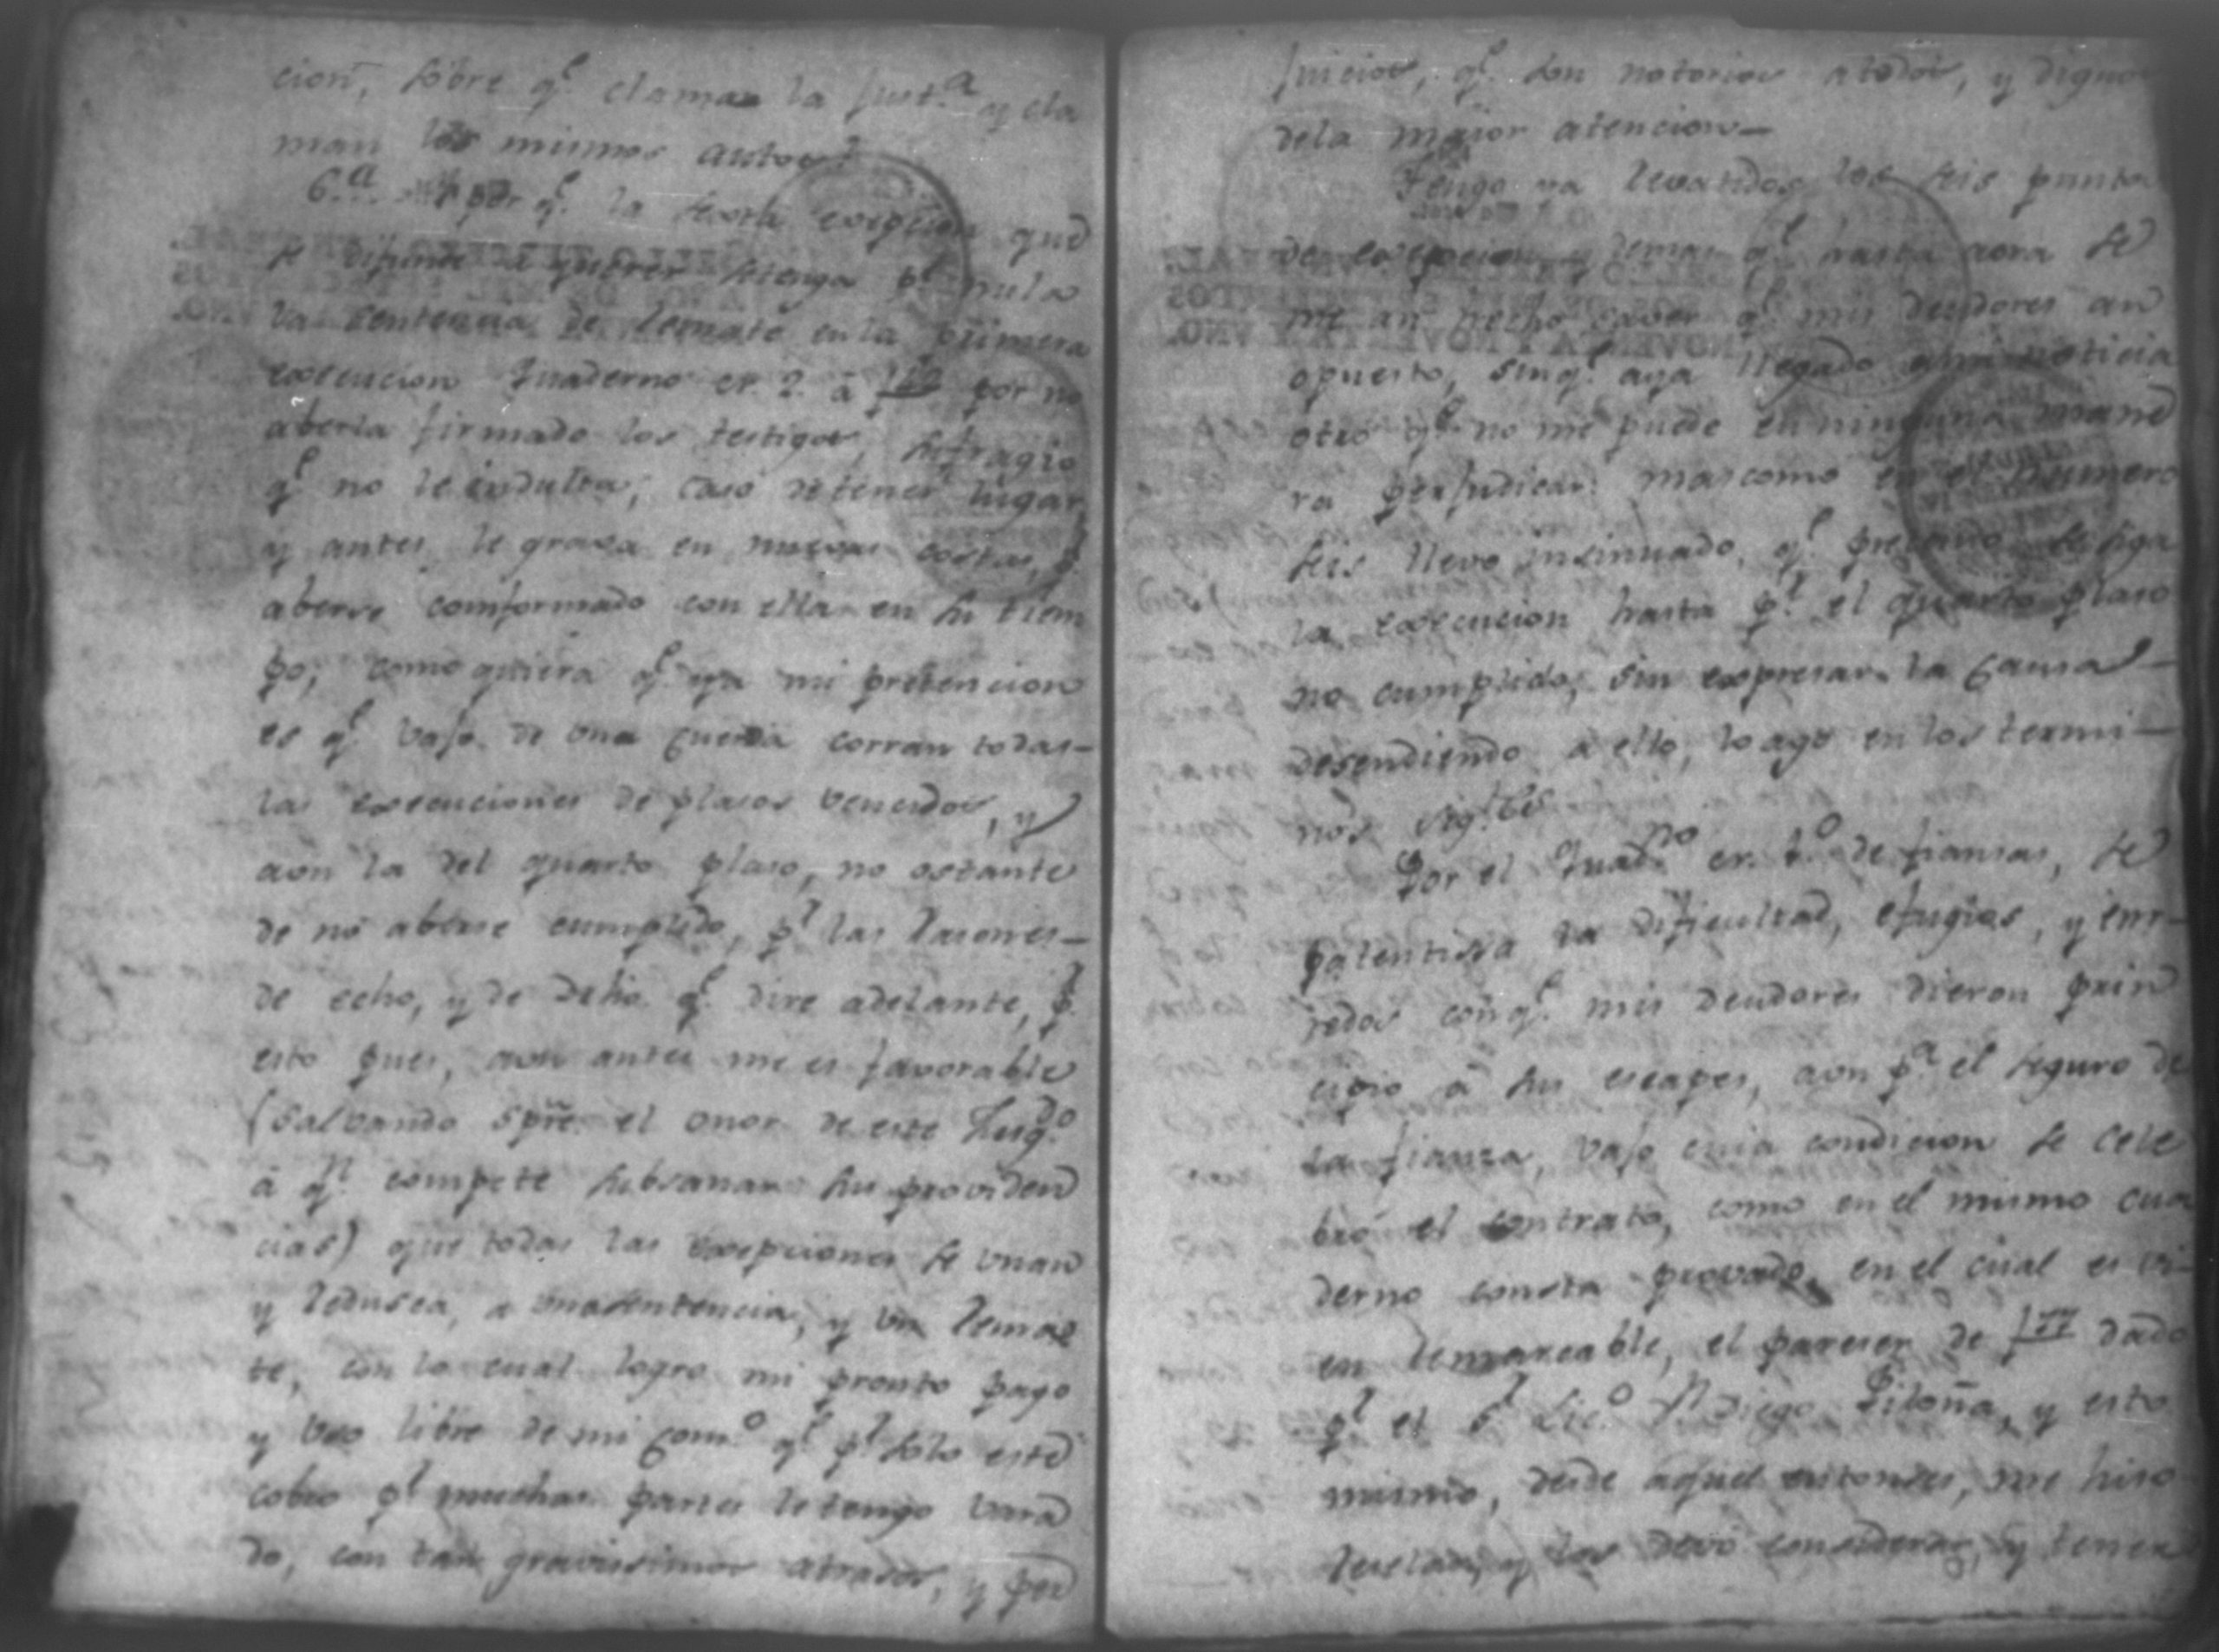 cion, sobre q.e claman la Just.a y cla
man los mismos autos.
6.a por q.e la sexta que
se difunde a querer setenga p.r nula
la sentencia de Remate en la primera
execucion quaderno cr. 2. â f por no
aberla firmado los testigos, sufragio
q.e no le indulta, caso detener lugar
y antes le grava en nuevas costas, p.r
aberse comformado con ella en su tiem
po; como quiera q.e ya mi pretencion
es q.e vajo de una cuerda corran todas
las execuciones de plasos vencidos, y
aon la del quarto plaso, no ostante
de no aberse cumplido, p.r las Rasones
de echo, y de dcho. q.e dire adelante, p.r
esto pues, aon antes me es favorable
(salvando spre. el onor de este Jusg.do
â q.n compete subsanar su providen
cias) que todas las exepciones se unan
y Redusca, a unasentencia, y un Rema
te, con lo cual logro mi pronto pago
y uso libre de mi Com.o q.e p.r solo este
cobro p.r muchas partes letengo vara
do, con tan gravissimos atrasos, y per
juicios, q.e son notorios atodos, y dignos
dela maior atencion
Tengo ya levatidos los seis puntos
de exepcion y demas q.e hasta aora se
me an hecho saver q.e mis deudores an
opuesto, sinq.e aya llegado ami noticia
otro q.e no me puede en ninguna mane
ra perjudicar: mascomo en el numero
seis llevo insinuado, q.e se siga
la execucion hasta p.r el quarto plaso
no cumplido, sin expresar la Causa
desendiendo a ello, lo ago en los termi
nos sig.tes
Por el Quad.no cr. 1.o de fiansas, se
patentisa la dificultad, efugios, y enr
redos conq.e mis deudores dieron prin
cipio â sus escapes, aon p.a el seguro de
la fianza, vajo cuia condicion se cele
bró el contrato, como en el mismo cua
derno consta provado, en el cual es vi
en Remarcable, el pareser de f 77 dado
p.r el S.r Lic.o D.n Diego Piloña, y esto
mismo, desde aquel entonses, me hiso
Reselar, y los devo considerar, y tener